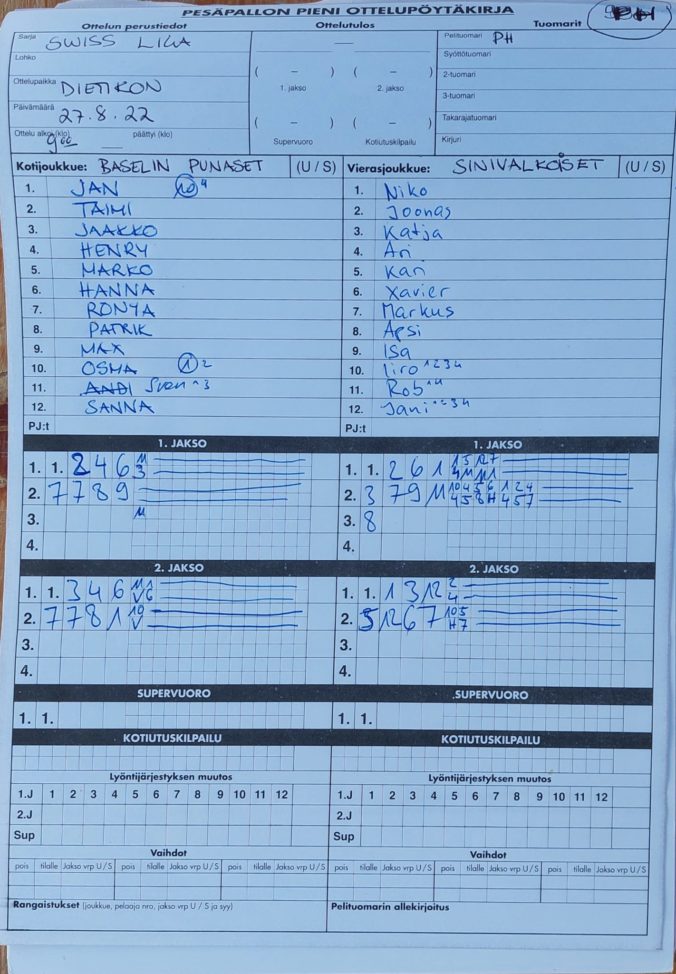 PESÄPALLON PIENI OTTELUPÖYTÄKIRJA
Ottelun perustiedot Ottelutulos Tuomarit
Sarja SWISS LIGA
Lohko
Ottelupaikka DIETIKON
Päivämäärä 27.8.22
Ottelu alkoi (klo) 9 00 päättyi (klo)
( – ) ( – )
1. jakso 2. jakso
( – ) ( – )
Supervuoro Kotiutuskilpailu
Pelituomari PH
Syöttötuomari
2-tuomari
3-tuomari
Takarajatuomari
Kirjuri
Kotijoukkue: BASELIN PUNASET (U / S) Vierasjoukkue: SINIVALKOISET (U / S)
1. JAN 10 4 1. Niko
2. TAIMI 2. Joonas
3. JAAKKO 3. Katja
4. HENRY 4. Ari
5. MARKO 5. Kari
6. HANNA 6. Xavier
7. RONYA 7. Markus
8. PATRIK 8. Apsi
9. MAX 9. Isa
10. OSMA 1 2 10. Iiro 1234
11. ANDI Sven 13 11. Rob
12. SANNA 12. Jani 1234
PJ:t PJ:t
1. JAKSO 1. JAKSO
1. 1. 2 4 6 1. 1. 2 6 1
2. 7 7 8 9 2. 3 7 9 11
3. 3. 8
4. 4.
2. JAKSO 2. JAKSO
1. 1. 3 4 6 1. 1. 1 3 12 2 4
2. 7 7 8 1 10 V 2. 5 12 6 7 10 5 H 7
3. 3.
4. 4.
SUPERVUORO SUPERVUORO
1. 1. 1. 1.
KOTIUTUSKILPAILU KOTIUTUSKILPAILU
Lyöntijärjestyksen muutos Lyöntijärjestyksen muutos
1.J 1 2 3 4 5 6 7 8 9 10 11 12 1.J 1 2 3 4 5 6 7 8 9 10 11 12
2.J 2.J
Sup Sup
Vaihdot Vaihdot
pois tilalle Jakso vrp U / S pois tilalle Jakso vrp U / S pois tilalle Jakso vrp U / S pois tilalle Jakso vrp U / S pois tilalle Jakso vrp U / S pois tilalle Jakso vrp U / S
Rangaistukset (joukkue, pelaaja nro, jakso vrp U / S ja syy) Pelituomarin allekirjoitus